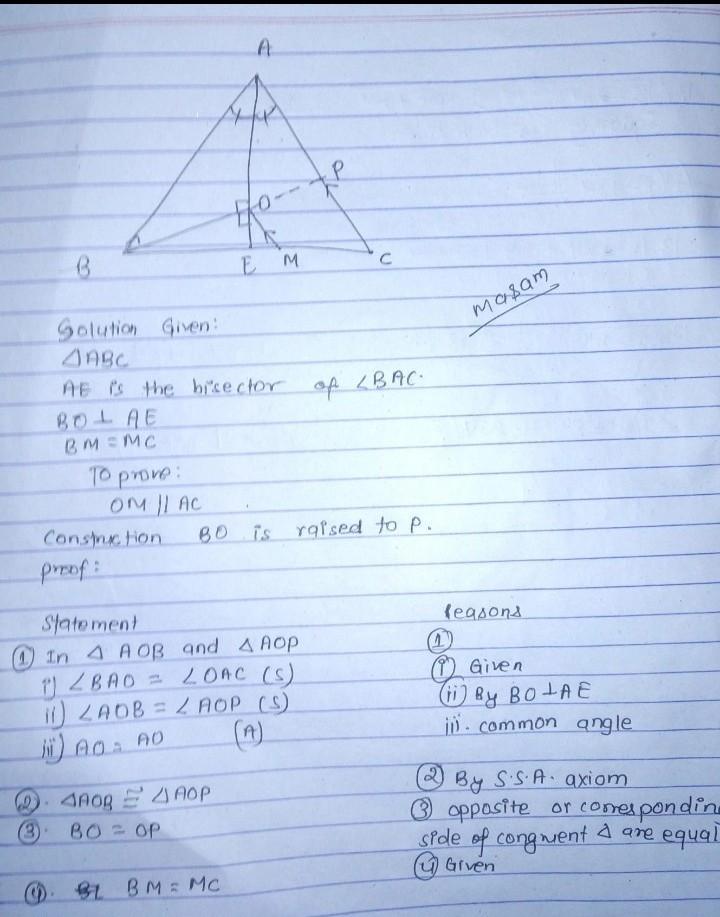 A
P
O
B
E
M
C
masam
Solution Given:
△ABC
AE is the bisector of ∠BAC.
BO ⊥ AE
BM = MC
To prove:
OM || AC
Construction BO is raised to P.
proof:
Statement
① In △ AOB and △ AOP
i) ∠BAO = ∠OAC (S)
ii) ∠AOB = ∠AOP (S)
iii) AO = AO (A)
②. △AOB ≅ △AOP
③. BO = OP
④. BM = MC
reasons
①
(i) Given
(ii) By BO ⊥ AE
iii. common angle
② By S.S.A. axiom
③ opposite or correspondin
side of congruent △ are equal
④ Given